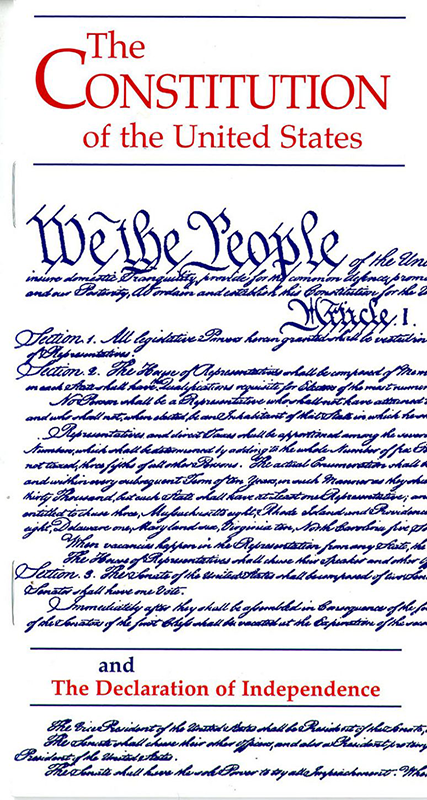 The
CONSTITUTION
of the United States
We the People of the Unit
insure domestic Tranquility, provide for the common defence, promo
and our Posterity, do ordain and establish this Constitution for the U
Article. I.
Section. 1. All legislative Powers herein granted shall be vested in
of Representatives.
Section. 2. The House of Representatives shall be composed of Mem
in each State shall have Qualifications requisite for Electors of the most numer
No Person shall be a Representative who shall not have attained t
and who shall not, when elected, be an Inhabitant of that State in which he
Representatives and direct Taxes shall be apportioned among the sever
Number, which shall be determined by adding to the whole Number of free
not taxed, three fifths of all other Persons. The actual Enumeration shall
and within every subsequent Term of ten Years, in such Manner as they sha
thirty Thousand, but each State shall have at Least one Representative; an
entitled to chuse three, Massachusetts eight, Rhode Island and Providence
eight, Delaware one, Maryland six, Virginia ten, North Carolina five,
When vacancies happen in the Representation from any State, the
The House of Representatives shall chuse their Speaker and other
Section. 3. The Senate of the United States shall be composed of two Sen
Senator shall have one Vote.
Immediately after they shall be assembled in Consequence of the
of the Senators of the first Class shall be vacated at the Expiration of the sec
and
The Declaration of Independence
The Vice President of the United States shall be President of the Senate,
The Senate shall chuse their other Officers, and also a President pro tem
President of the United States.
The Senate shall have the sole Power to try all Impeachments. When